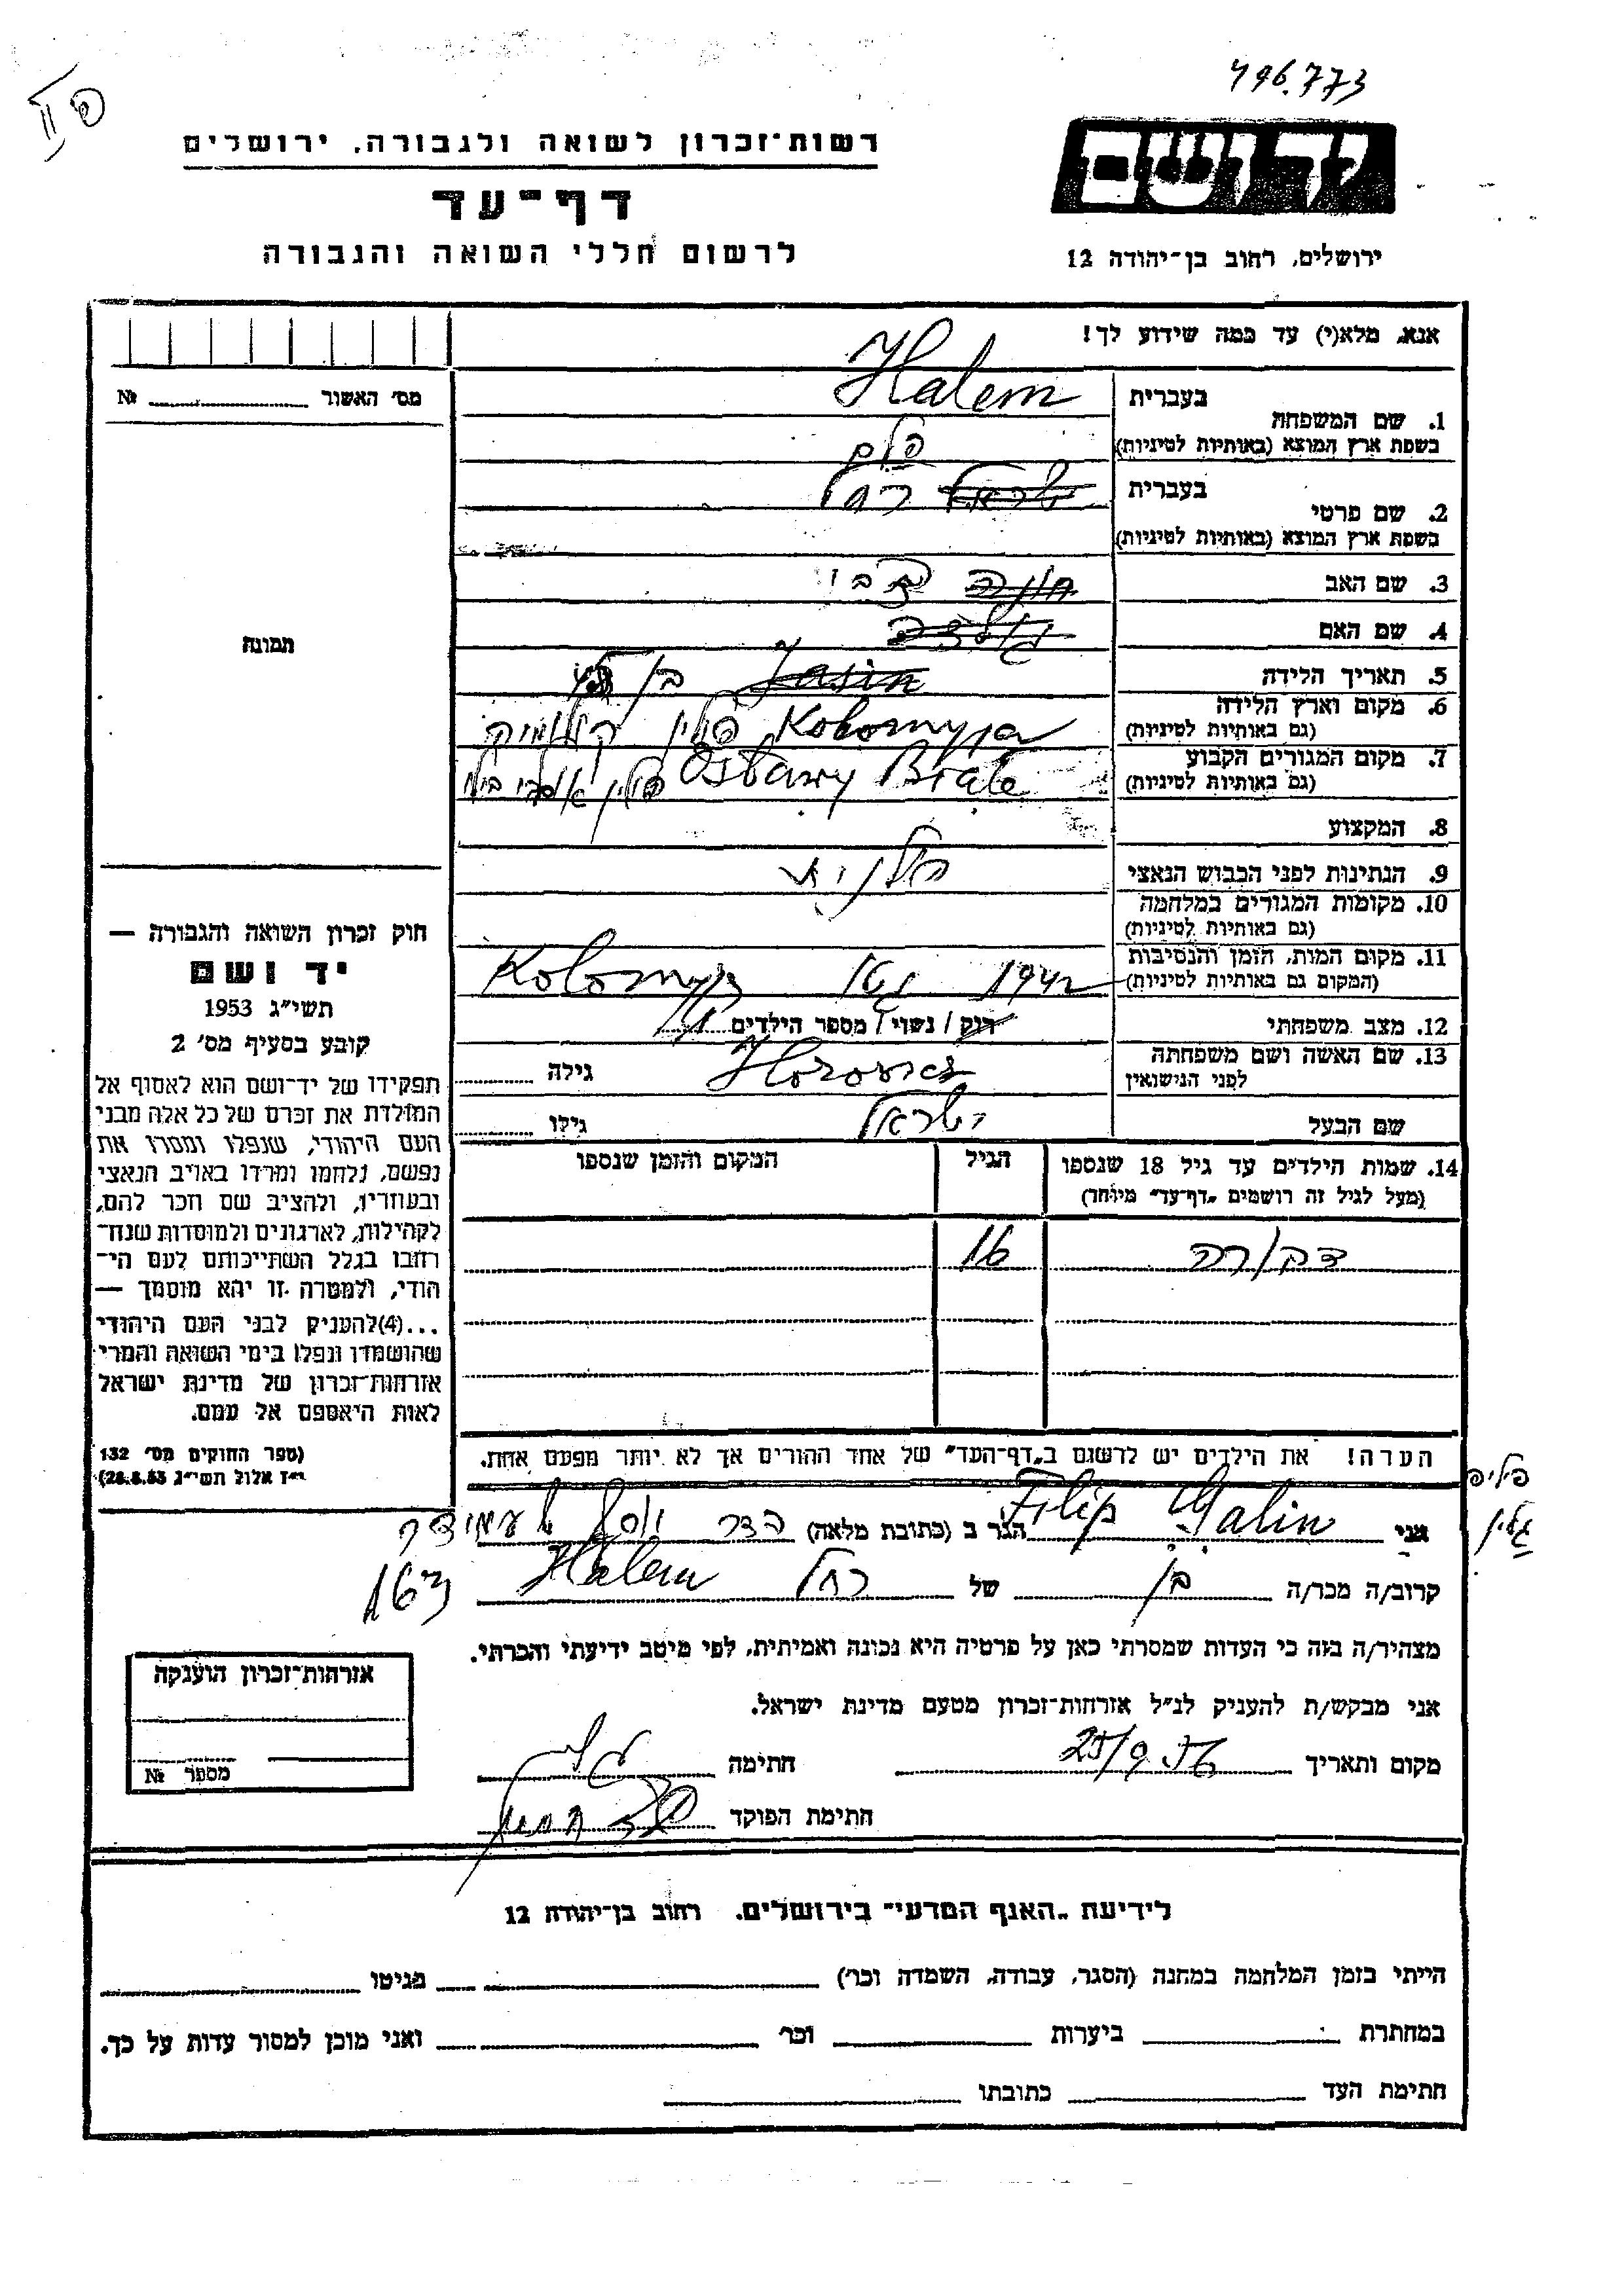 496.773
רשות־זכרון לשואה ולגבורה, ירושלים
יד ושם
דף־עד
לרשום חללי השואה והגבורה
ירושלים, רחוב בן־יהודה 12
אנא, מלא(י) עד כמה שידוע לך!
מס' האשור № 
1. שם המשפחה
בעברית Halem
בשפת ארץ המוצא (באותיות לטיניות) הלם
2. שם פרטי
בעברית ישראל רחל
בשפת ארץ המוצא (באותיות לטיניות)
3. שם האב
4. שם האם
תמונה
5. תאריך הלידה Jasin בן
6. מקום וארץ הלידה
(גם באותיות לטיניות) Kolomyja פולין
7. מקום המגורים הקבוע
(גם באותיות לטיניות) פולין
8. המקצוע
9. הנתינות לפני הכבוש הנאצי פולנית
10. מקומות המגורים במלחמה
(גם באותיות לטיניות)
11. מקום המות, הזמן והנסיבות
(המקום גם באותיות לטיניות) 1942 גטו Kolomyja
12. מצב משפחתי רוק / נשוי / מספר הילדים 1
13. שם האשה ושם משפחתה
לפני הנישואין גילה
שם הבעל ישראל גילו
חוק זכרון השואה והגבורה —
יד ושם
תשי"ג 1953
קובע בסעיף מס' 2
תפקידו של יד־ושם הוא לאסוף אל
המולדת את זכרם של כל אלה מבני
העם היהודי, שנפלו ומסרו את
נפשם, נלחמו ומרדו באויב הנאצי
ובעוזריו, ולהציב שם וזכר להם,
לקהילות, לארגונים ולמוסדות שנח־
רבו בגלל השתייכותם לעם הי־
הודי, ולמטרה זו יהא מוסמך —
...(4)להעניק לבני העם היהודי
שהושמדו ונפלו בימי השואה והמרי
אזרחות־זכרון של מדינת ישראל
לאות היאספם אל עמם.
(ספר החוקים מס' 132
י"ז אלול תשי"ג 28.8.53)
14. שמות הילדים עד גיל 18 שנספו
(מעל לגיל זה רושמים „דף־עד" מיוחד)
הגיל
המקום והזמן שנספו
דבורה 16
הערה! את הילדים יש לרשום ב„דף־העד" של אחד ההורים אך לא יותר מפעם אחת.
פיליפ
גלין
אני Filip Galin הגר ב (כתובת מלאה) הדר יוסף
קרוב/ה מכר/ה בן של רחל Halem
מצהיר/ה בזה כי העדות שמסרתי כאן על פרטיה היא נכונה ואמיתית, לפי מיטב ידיעתי והכרתי.
אני מבקש/ת להעניק לנ"ל אזרחות־זכרון מטעם מדינת ישראל.
מקום ותאריך 25/9 56 חתימה
חתימת הפוקד
אזרחות־זכרון הוענקה
מספר №
לידיעת „האגף המדעי" בירושלים. רחוב בן־יהודה 12
הייתי בזמן המלחמה במחנה (הסגר, עבודה, השמדה וכו') בגיטו
במחתרת ביערות וכו' ואני מוכן למסור עדות על כך.
חתימת העד כתובתו